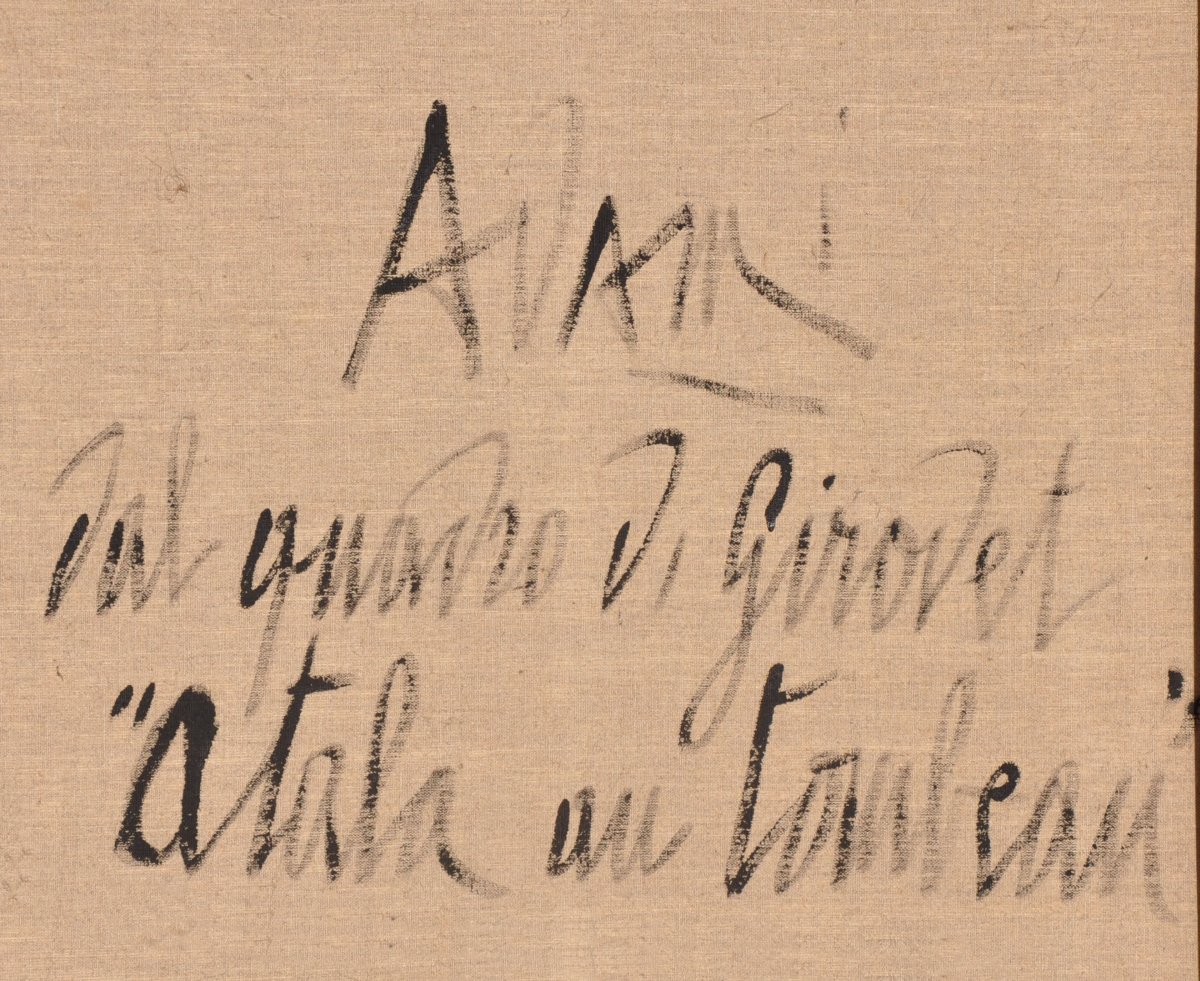 Adami
dal quadro di Girodet
"Atala au tombeau"